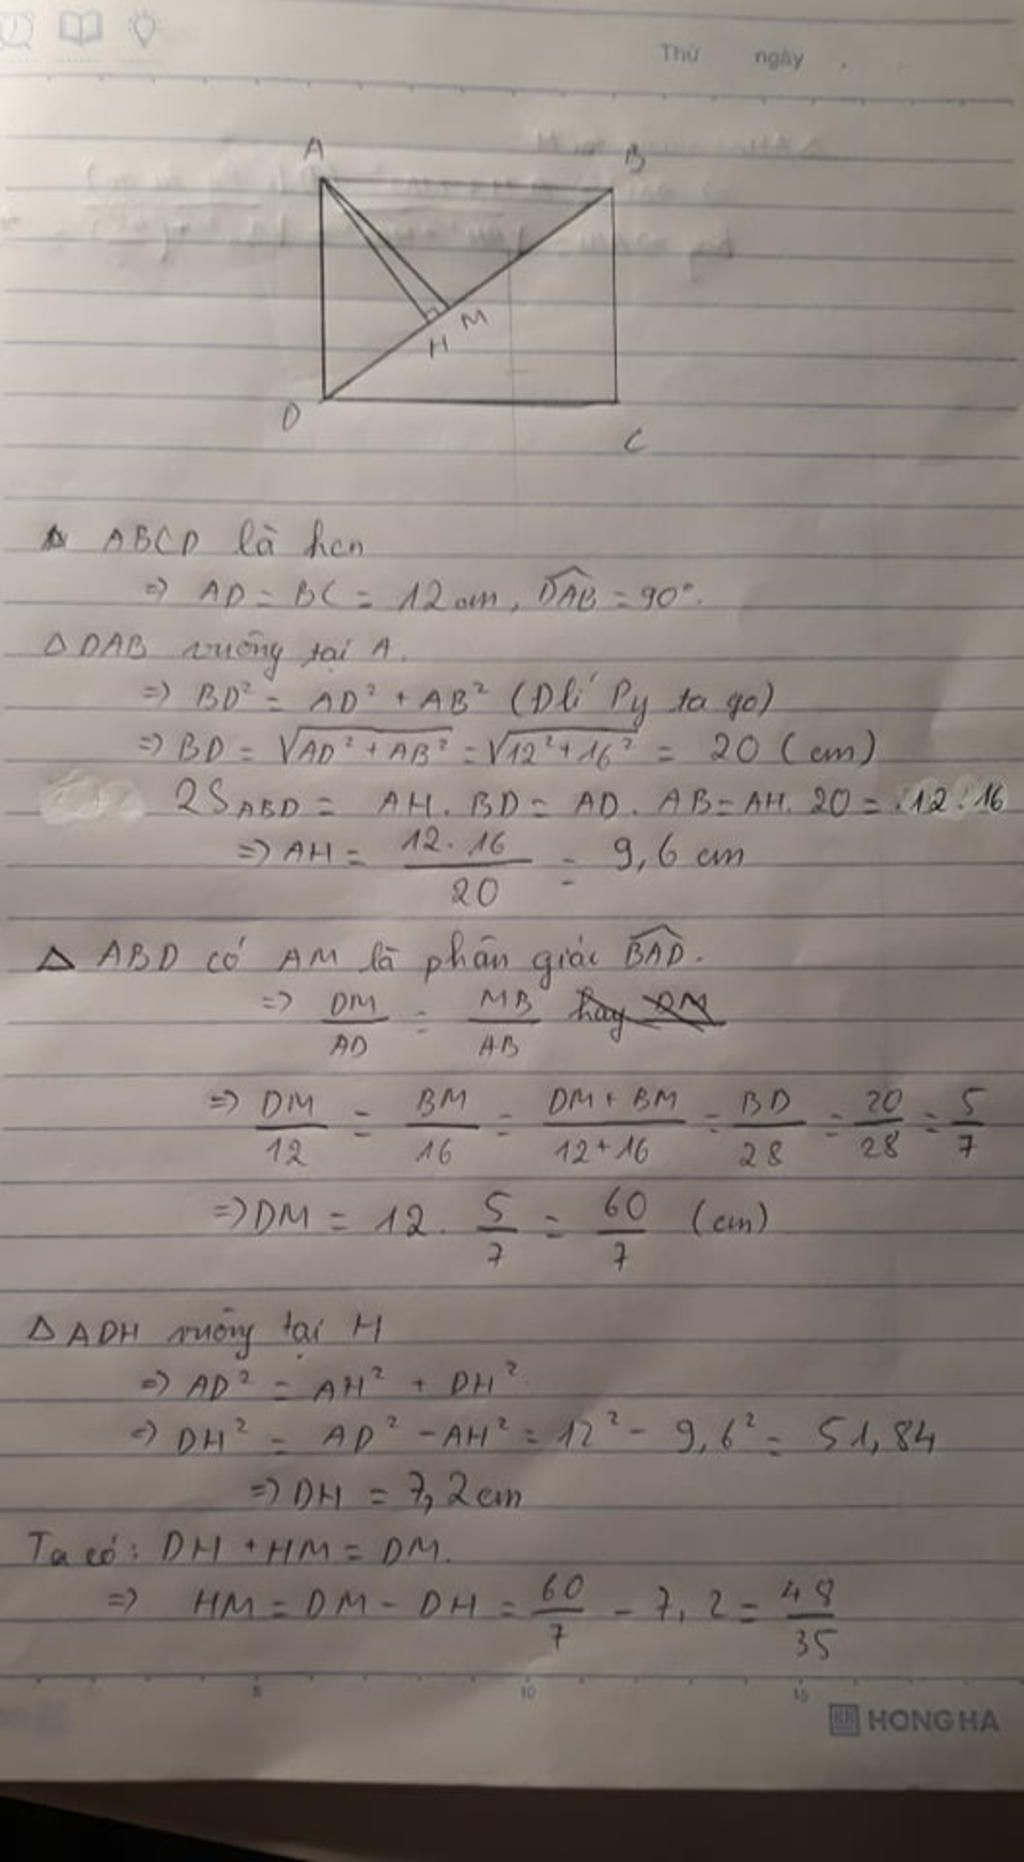 Thứ ngày
A
B
M
H
D
C
Δ ABCD là hcn
=> AD = BC = 12 cm, DAB = 90°.
Δ DAB vuông tại A.
=> BD² = AD² + AB² (Đlí Py ta go)
=> BD = √AD² + AB² = √12² + 16² = 20 (cm)
2S ABD = AH . BD = AD . AB = AH . 20 = 12 . 16
=> AH = 12 . 16 / 20 = 9,6 cm
Δ ABD có AM là phân giác BAD.
=> DM / AD = MB / AB hay DM
=> DM / 12 = BM / 16 = DM + BM / 12 + 16 = BD / 28 = 20 / 28 = 5 / 7
=> DM = 12 . 5 / 7 = 60 / 7 (cm)
Δ ADH vuông tại H
=> AD² = AH² + DH²
=> DH² = AD² - AH² = 12² - 9,6² = 51,84
=> DH = 7,2 cm
Ta có : DH + HM = DM.
=> HM = DM - DH = 60 / 7 - 7,2 = 48 / 35
5 10 15
HONG HA